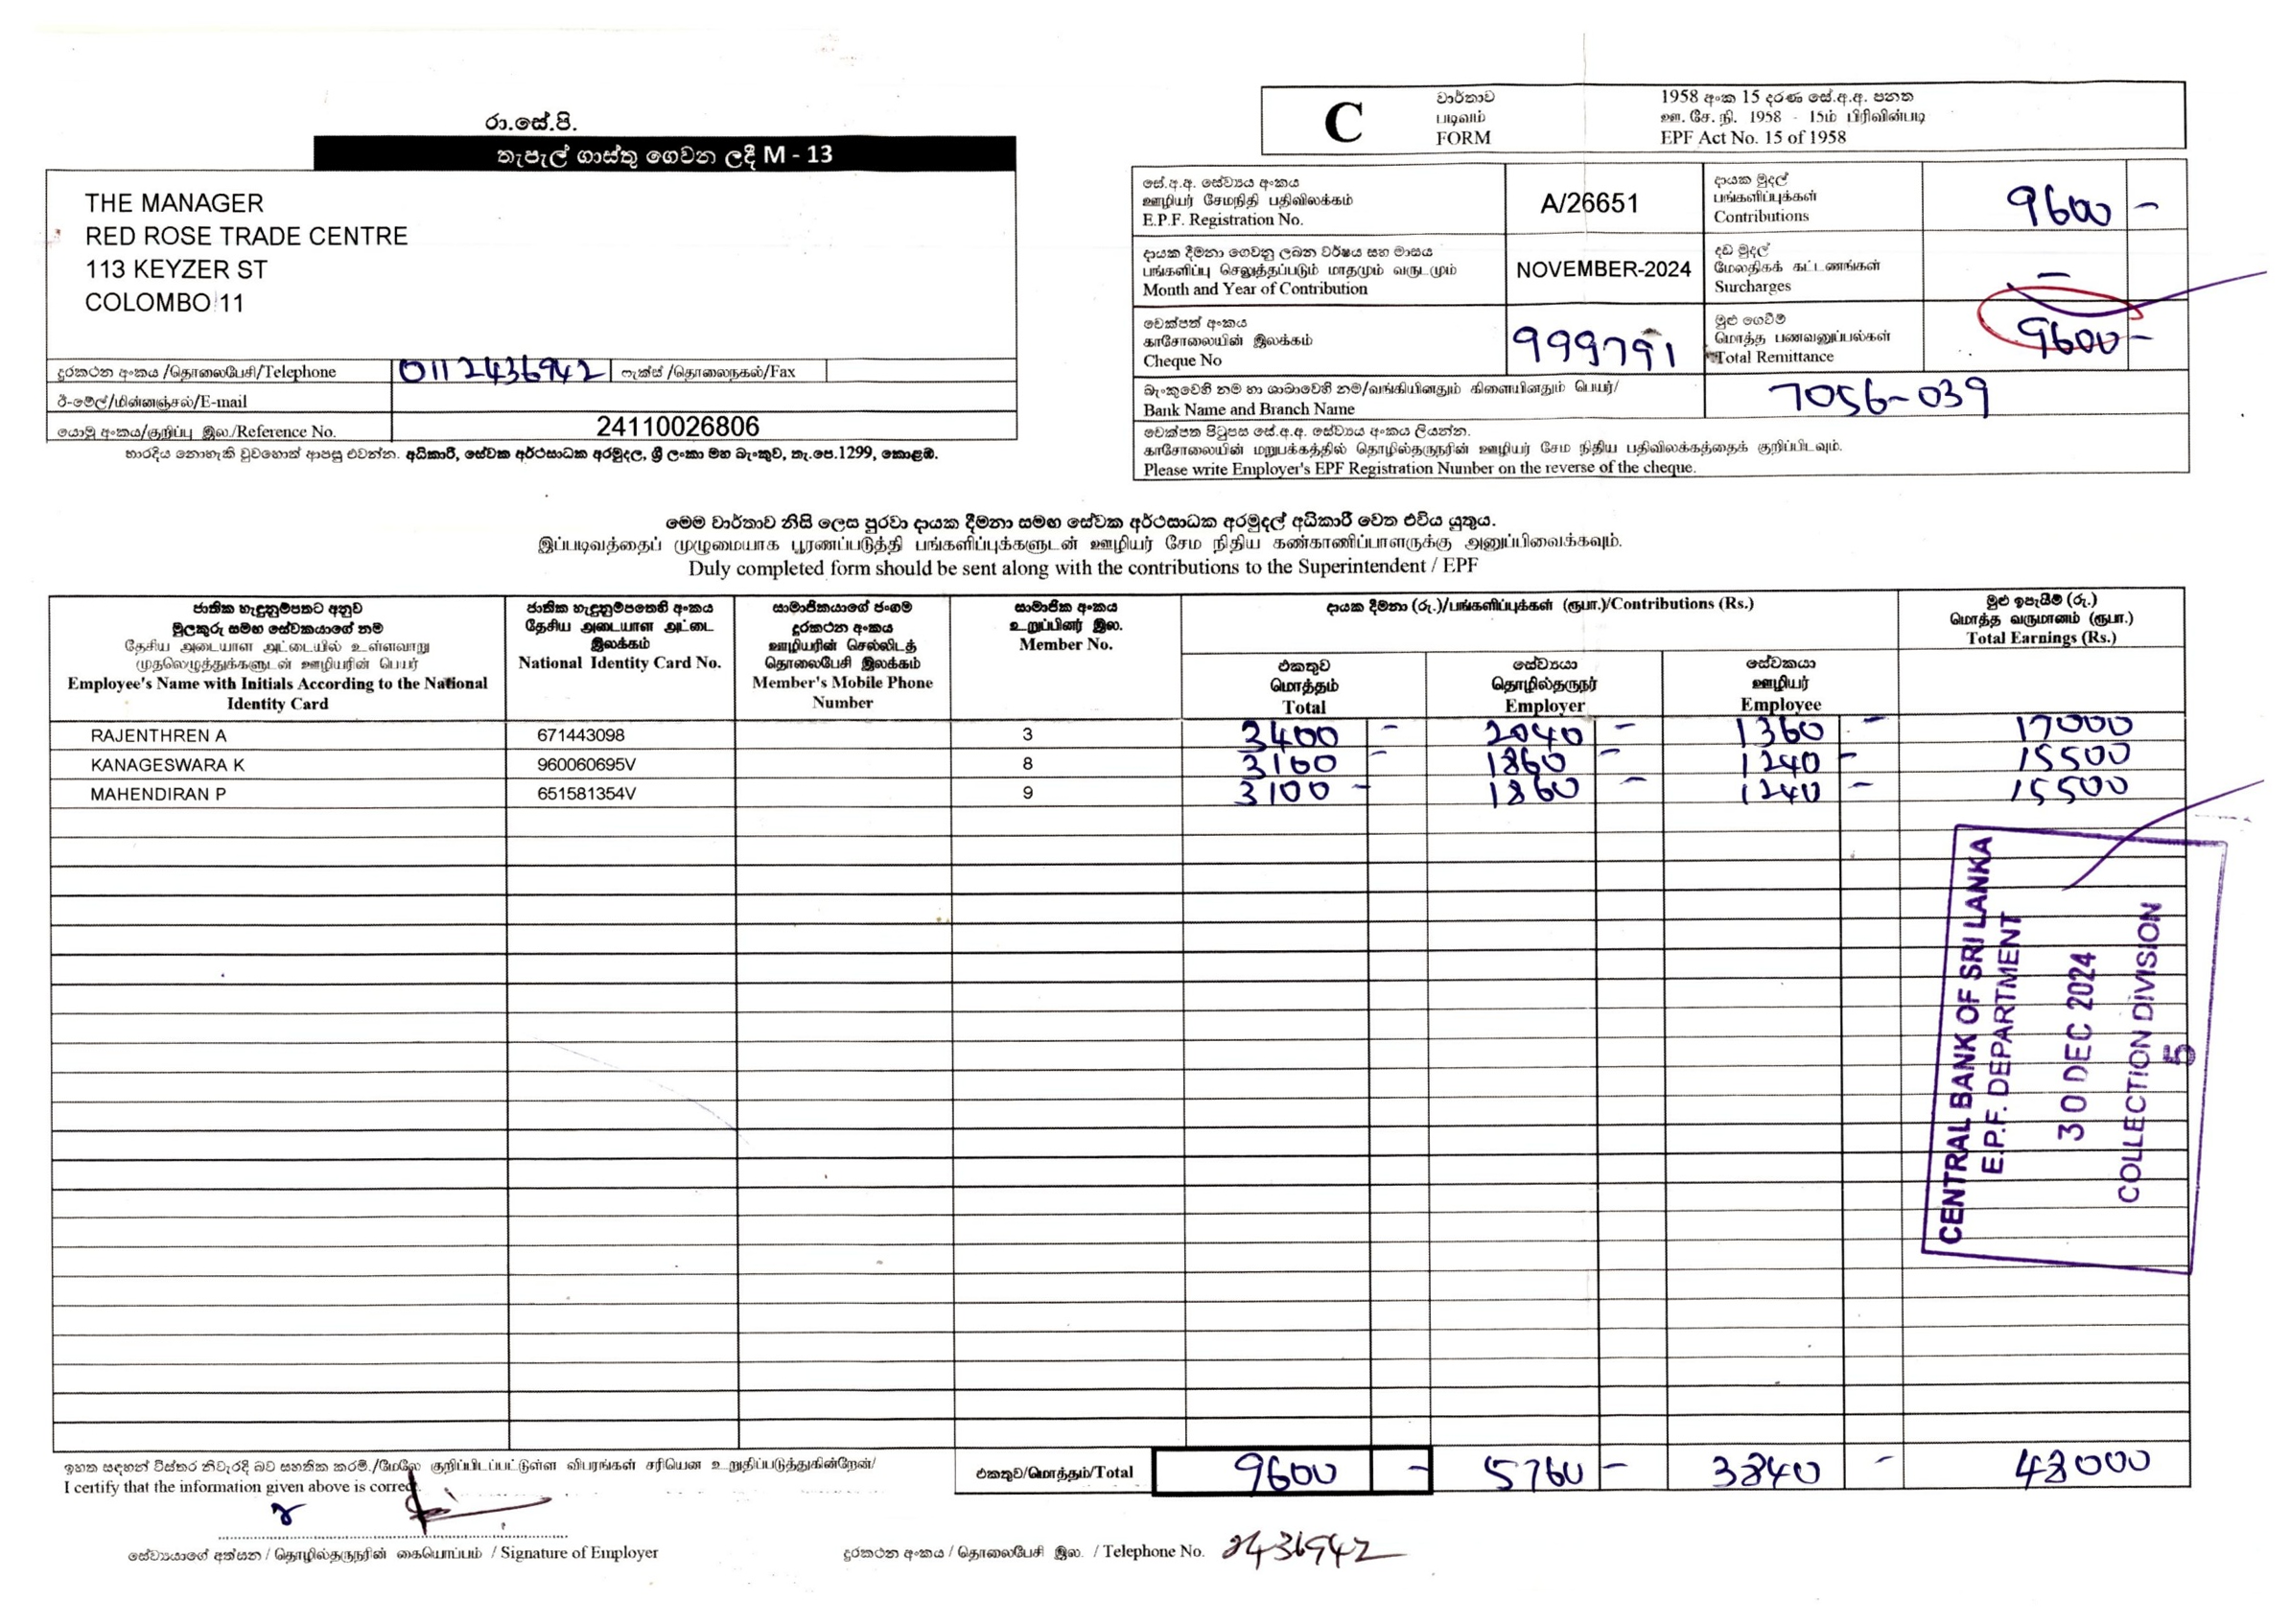 රා.සේ.පි.
තැපැල් ගාස්තු ගෙවන ලදී M - 13
THE MANAGER
RED ROSE TRADE CENTRE
113 KEYZER ST
COLOMBO 11
දුරකථන අංකය /தொலைபேசி/Telephone 0112436942 ෆැක්ස් /தொலைநகல்/Fax
ඊ-මේල්/மின்னஞ்சல்/E-mail
යොමු අංකය/குறிப்பு இல./Reference No. 24110026806
භාරදිය නොහැකි වුවහොත් ආපසු එවන්න. අධිකාරී, සේවක අර්ථසාධක අරමුදල, ශ්‍රී ලංකා මහ බැංකුව, තැ.පෙ.1299, කොළඹ.
C
වාර්තාව
படிவம்
FORM
1958 අංක 15 දරණ සේ.අ.අ. පනත
ஊ. சே. நி. 1958 - 15ம் பிரிவின்படி
EPF Act No. 15 of 1958
සේ.අ.අ. සේව්‍යය අංකය
ஊழியர் சேமநிதி பதிவிலக்கம்
E.P.F. Registration No.
A/26651
දායක මුදල්
பங்களிப்புக்கள்
Contributions
9600 -
දායක දීමනා ගෙවනු ලබන වර්ෂය සහ මාසය
பங்களிப்பு செலுத்தப்படும் மாதமும் வருடமும்
Month and Year of Contribution
NOVEMBER-2024
දඩ මුදල්
மேலதிகக் கட்டணங்கள்
Surcharges
-
චෙක්පත් අංකය
காசோலையின் இலக்கம்
Cheque No
999791
මුළු ගෙවීම්
மொத்த பணவனுப்பல்கள்
Total Remittance
9600-
බැංකුවෙහි නම හා ශාඛාවෙහි නම/வங்கியினதும் கிளையினதும் பெயர்/
Bank Name and Branch Name
7056-039
චෙක්පත පිටුපස සේ.අ.අ. සේව්‍යය අංකය ලියන්න.
காசோலையின் மறுபக்கத்தில் தொழில்தருநரின் ஊழியர் சேம நிதிய பதிவிலக்கத்தைக் குறிப்பிடவும்.
Please write Employer's EPF Registration Number on the reverse of the cheque.
මෙම වාර්තාව නිසි ලෙස පුරවා දායක දීමනා සමඟ සේවක අර්ථසාධක අරමුදල් අධිකාරී වෙත එවිය යුතුය.
இப்படிவத்தைப் முழுமையாக பூரணப்படுத்தி பங்களிப்புக்களுடன் ஊழியர் சேம நிதிய கண்காணிப்பாளருக்கு அனுப்பிவைக்கவும்.
Duly completed form should be sent along with the contributions to the Superintendent / EPF
ජාතික හැඳුනුම්පතට අනුව
මුලකුරු සමඟ සේවකයාගේ නම
தேசிய அடையாள அட்டையில் உள்ளவாறு
முதலெழுத்துக்களுடன் ஊழியரின் பெயர்
Employee's Name with Initials According to the National
Identity Card
ජාතික හැඳුනුම්පතෙහි අංකය
தேசிய அடையாள அட்டை
இலக்கம்
National Identity Card No.
සාමාජිකයාගේ ජංගම
දුරකථන අංකය
ஊழியரின் செல்லிடத்
தொலைபேசி இலக்கம்
Member's Mobile Phone
Number
සාමාජික අංකය
உறுப்பினர் இல.
Member No.
දායක දීමනා (රු.)/பங்களிப்புக்கள் (ரூபா.)/Contributions (Rs.)
එකතුව
மொத்தம்
Total
සේව්‍යයා
தொழில்தருநர்
Employer
සේවකයා
ஊழியர்
Employee
මුළු ඉපැයීම් (රු.)
மொத்த வருமானம் (ரூபா.)
Total Earnings (Rs.)
RAJENTHREN A 671443098 3 3400 - 2040 - 1360 - 17000
KANAGESWARA K 960060695V 8 3100 - 1860 - 1240 - 15500
MAHENDIRAN P 651581354V 9 3100 - 1860 - 1240 - 15500
CENTRAL BANK OF SRI LANKA
E.P.F. DEPARTMENT
30 DEC 2024
COLLECTION DIVISION
5
ඉහත සඳහන් විස්තර නිවැරදි බව සහතික කරමි./மேலே குறிப்பிடப்பட்டுள்ள விபரங்கள் சரியென உறுதிப்படுத்துகின்றேன்/
I certify that the information given above is correct.
එකතුව/மொத்தம்/Total 9600 - 5760 - 3840 - 48000
සේව්‍යයාගේ අත්සන / தொழில்தருநரின் கையொப்பம் / Signature of Employer
දුරකථන අංකය / தொலைபேசி இல. / Telephone No. 2436942